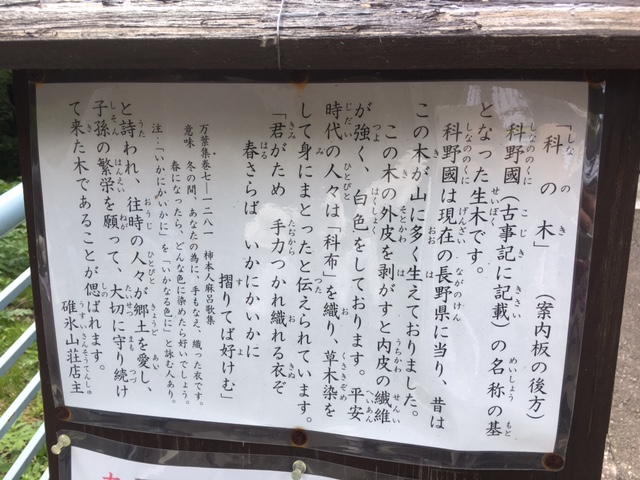 「科の木」　（案内板の後方）
科野國（古事記に記載）の名称の基
となった生木です。
科野國は現在の長野県に当り、昔は
この木が山に多く生えておりました。
この木の外皮を剥がすと内皮の繊維
が強く、白色をしております。平安
時代の人々は「科布」を織り、草木染を
して身にまとったと伝えられています。
「君がため　手力つかれ織れる衣ぞ
春さらば　いかにかいかに
摺りてば好けむ」
万葉集巻七―一二八一　柿本人麻呂歌集
意味　冬の間、あなたの為に、手もなえ、織った衣です。
春になったら、どんな色に染めたら好いでしょう。
注・「いかにかいかに」を「いかなる色に」と詠む人あり。
と詩われ、往時の人々が郷土を愛し、
子孫の繁栄を願って、大切に守り続け
て来た木であることが偲ばれます。
碓氷山荘店主